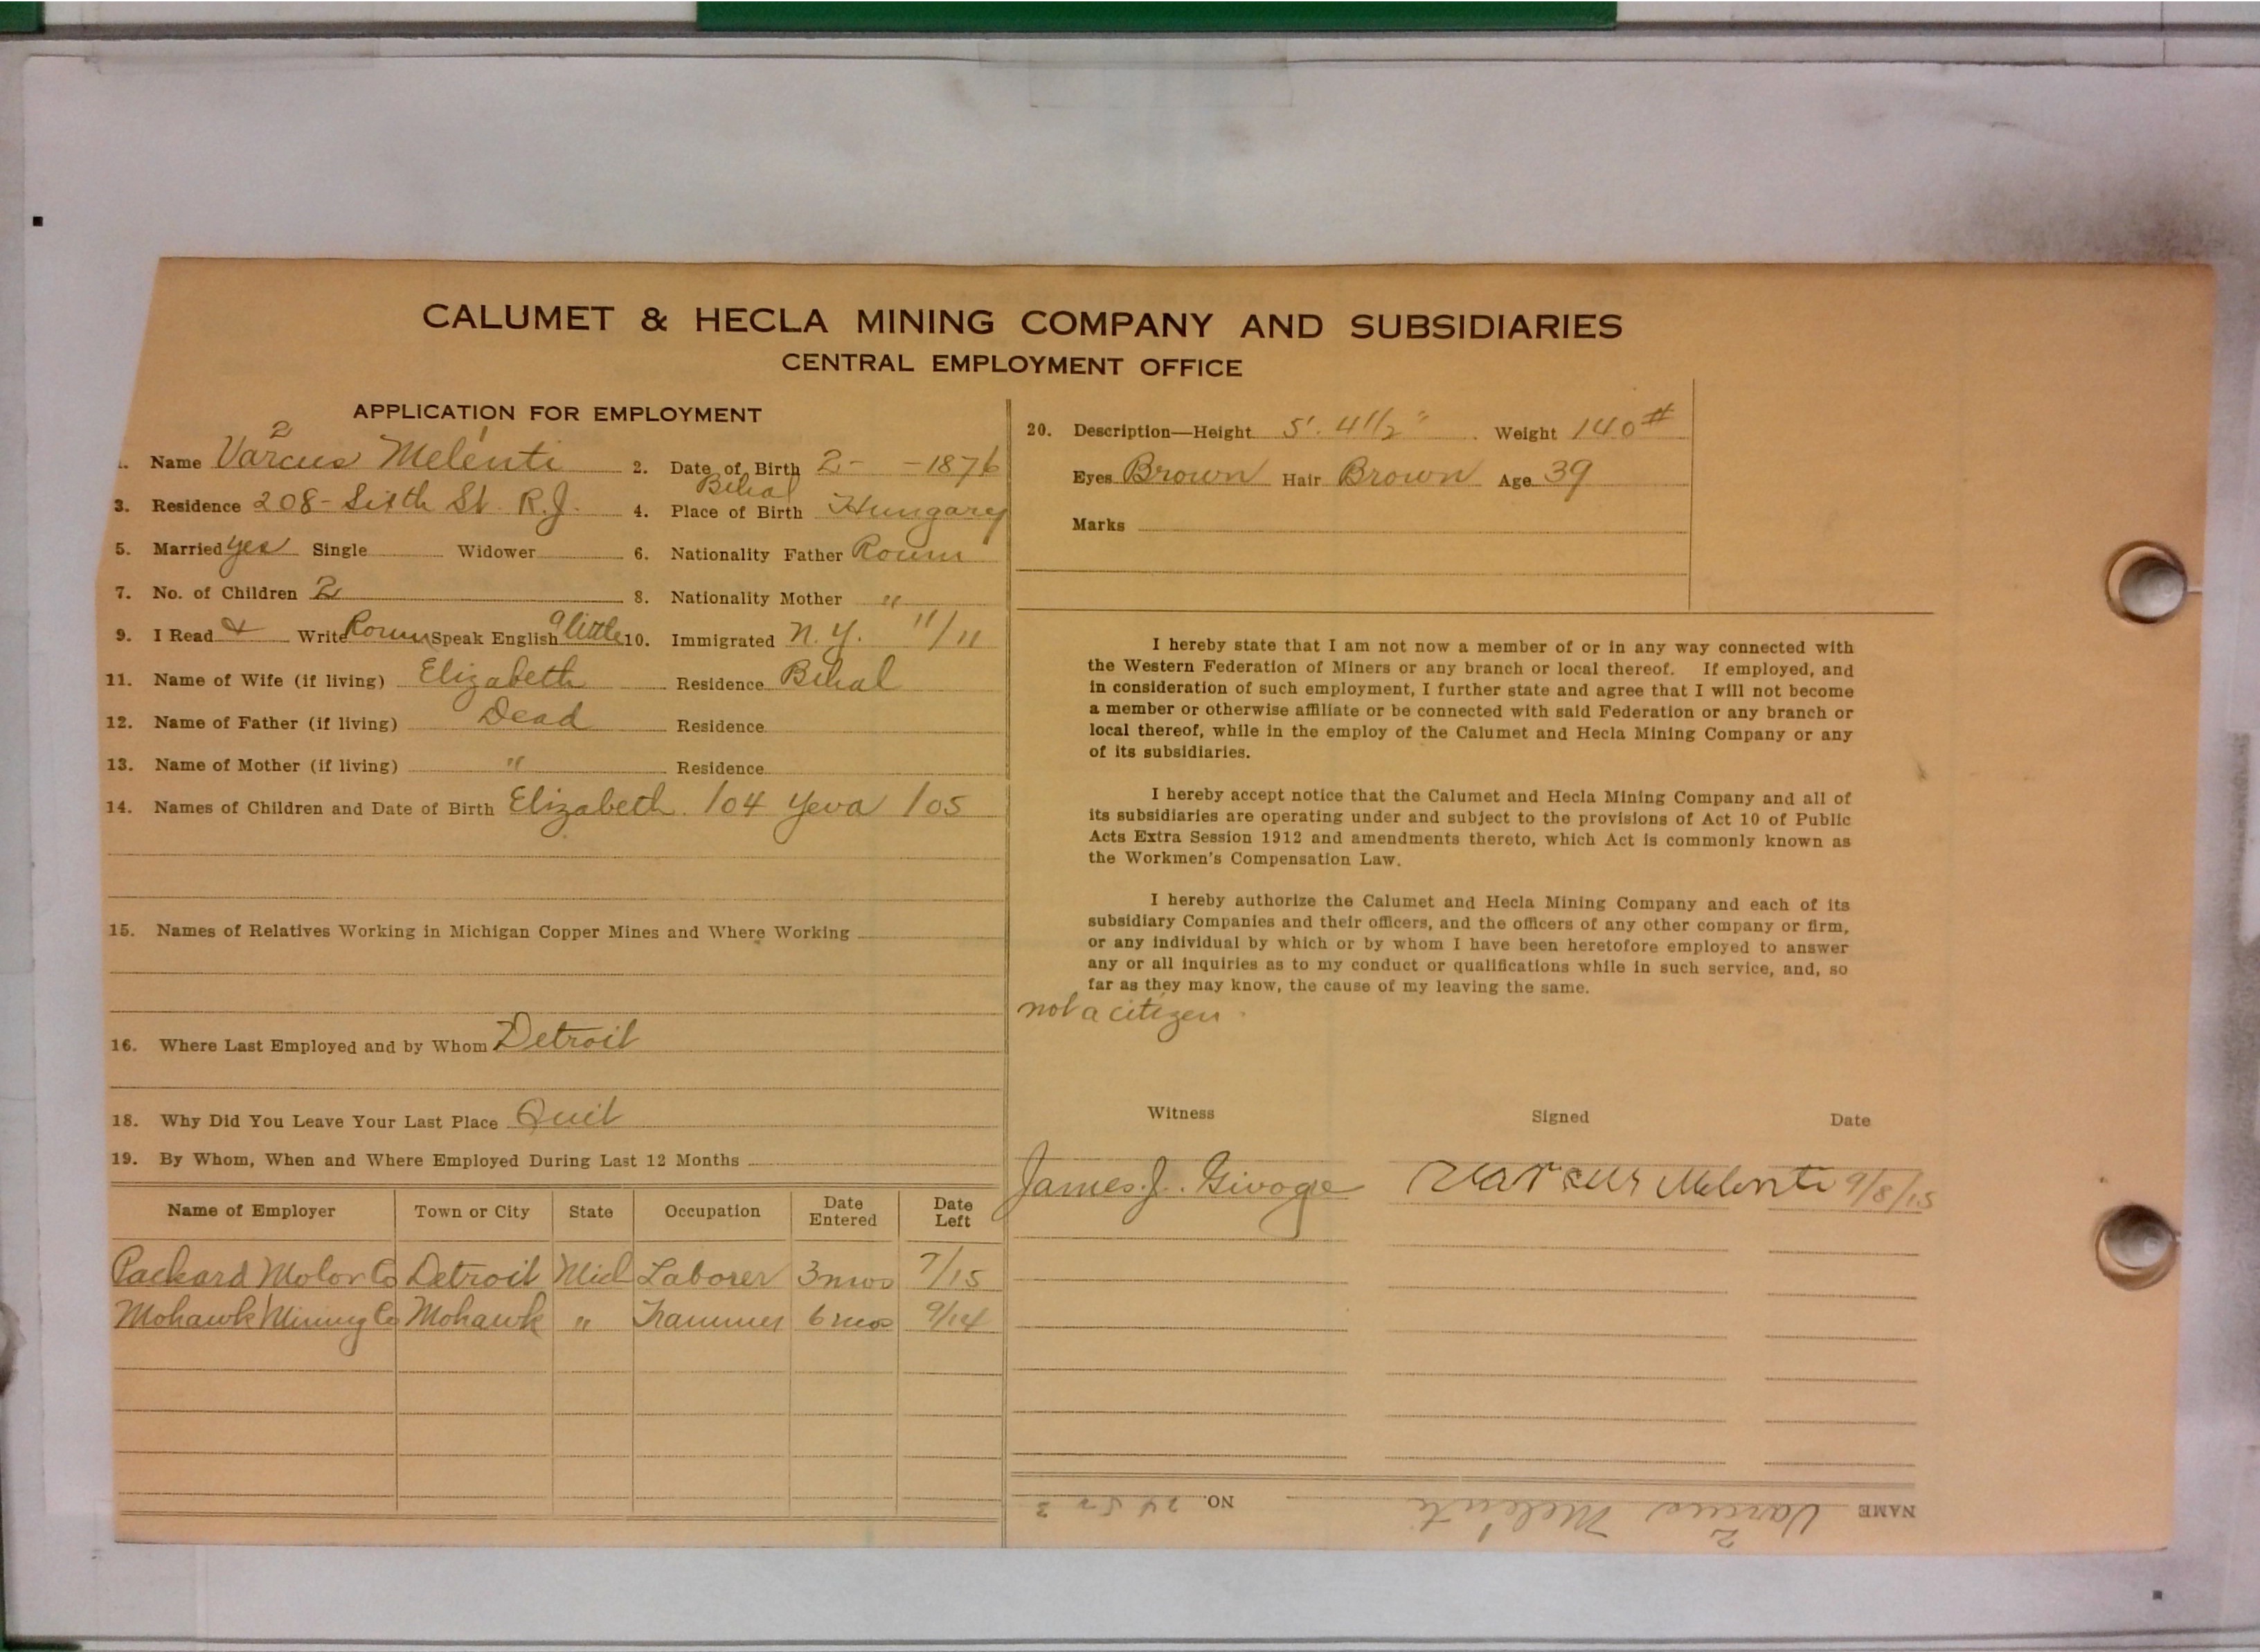 CALUMET & HECLA MINING COMPANY AND SUBSIDIARIES
CENTRAL EMPLOYMENT OFFICE
APPLICATION FOR EMPLOYMENT
2 1
1. Name Varcus Melenti 2. Date of Birth 2- -1876
Bihal
3. Residence 208- Sixth St. R.J. 4. Place of Birth Hungary
5. Married yes Single Widower 6. Nationality Father Roum
7. No. of Children 2 8. Nationality Mother "
9. I Read & Write Roum Speak English a little 10. Immigrated N.Y. 11/11
11. Name of Wife (if living) Elizabeth Residence Bihal
12. Name of Father (if living) Dead Residence
13. Name of Mother (if living) " Residence
14. Names of Children and Date of Birth Elizabeth. /04 Yeva /05
15. Names of Relatives Working in Michigan Copper Mines and Where Working
16. Where Last Employed and by Whom Detroit
18. Why Did You Leave Your Last Place Quit
19. By Whom, When and Where Employed During Last 12 Months
Name of Employer Town or City State Occupation Date Entered Date Left
Packard Motor Co Detroit Mich Laborer 3 mos 7/15
Mohawk Mining Co Mohawk " Trammer 6 mos 9/14
20. Description—Height 5'. 4 1/2" Weight 140#
Eyes Brown Hair Brown Age 39
Marks
I hereby state that I am not now a member of or in any way connected with
the Western Federation of Miners or any branch or local thereof. If employed, and
in consideration of such employment, I further state and agree that I will not become
a member or otherwise affiliate or be connected with said Federation or any branch or
local thereof, while in the employ of the Calumet and Hecla Mining Company or any
of its subsidiaries.
I hereby accept notice that the Calumet and Hecla Mining Company and all of
its subsidiaries are operating under and subject to the provisions of Act 10 of Public
Acts Extra Session 1912 and amendments thereto, which Act is commonly known as
the Workmen's Compensation Law.
I hereby authorize the Calumet and Hecla Mining Company and each of its
subsidiary Companies and their officers, and the officers of any other company or firm,
or any individual by which or by whom I have been heretofore employed to answer
any or all inquiries as to my conduct or qualifications while in such service, and, so
far as they may know, the cause of my leaving the same.
not a citizen.
Witness Signed Date
James J. Givogre Varcus Melenti 9/8/15
NAME Varcus Melenti NO.
2 1